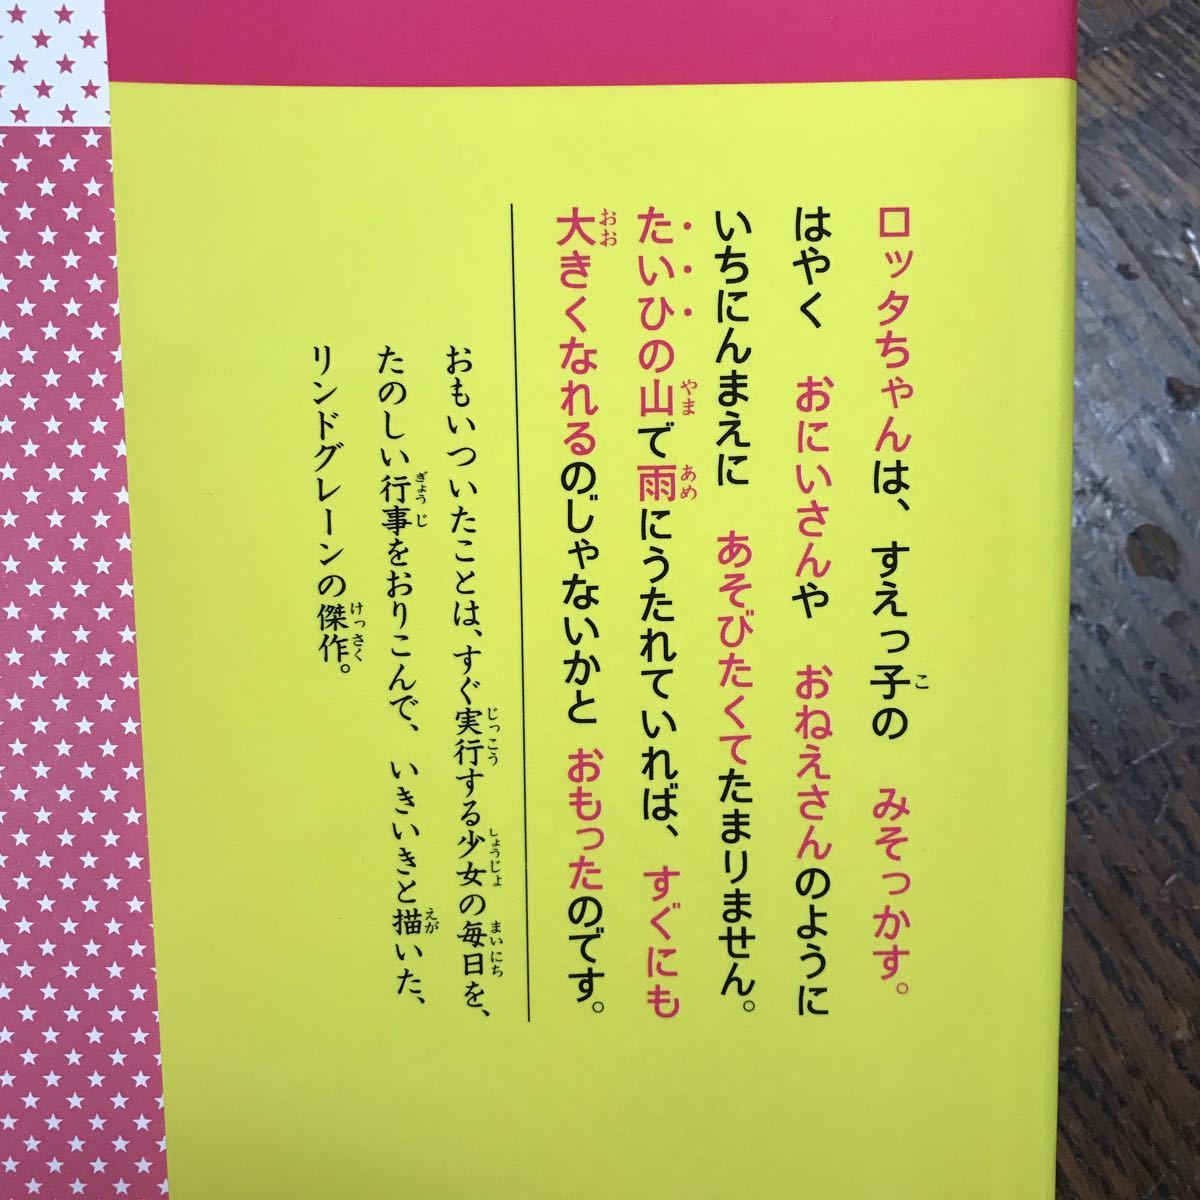 ロッタちゃんは、すえっ子の みそっかす。
はやく おにいさんや おねえさんのように
いちにんまえに あそびたくてたまりません。
たいひの山で雨にうたれていれば、すぐにも
大きくなれるのじゃないかと おもったのです。
おもいついたことは、すぐ実行する少女の毎日を、
たのしい行事をおりこんで、いきいきと描いた、
リンドグレーンの傑作。